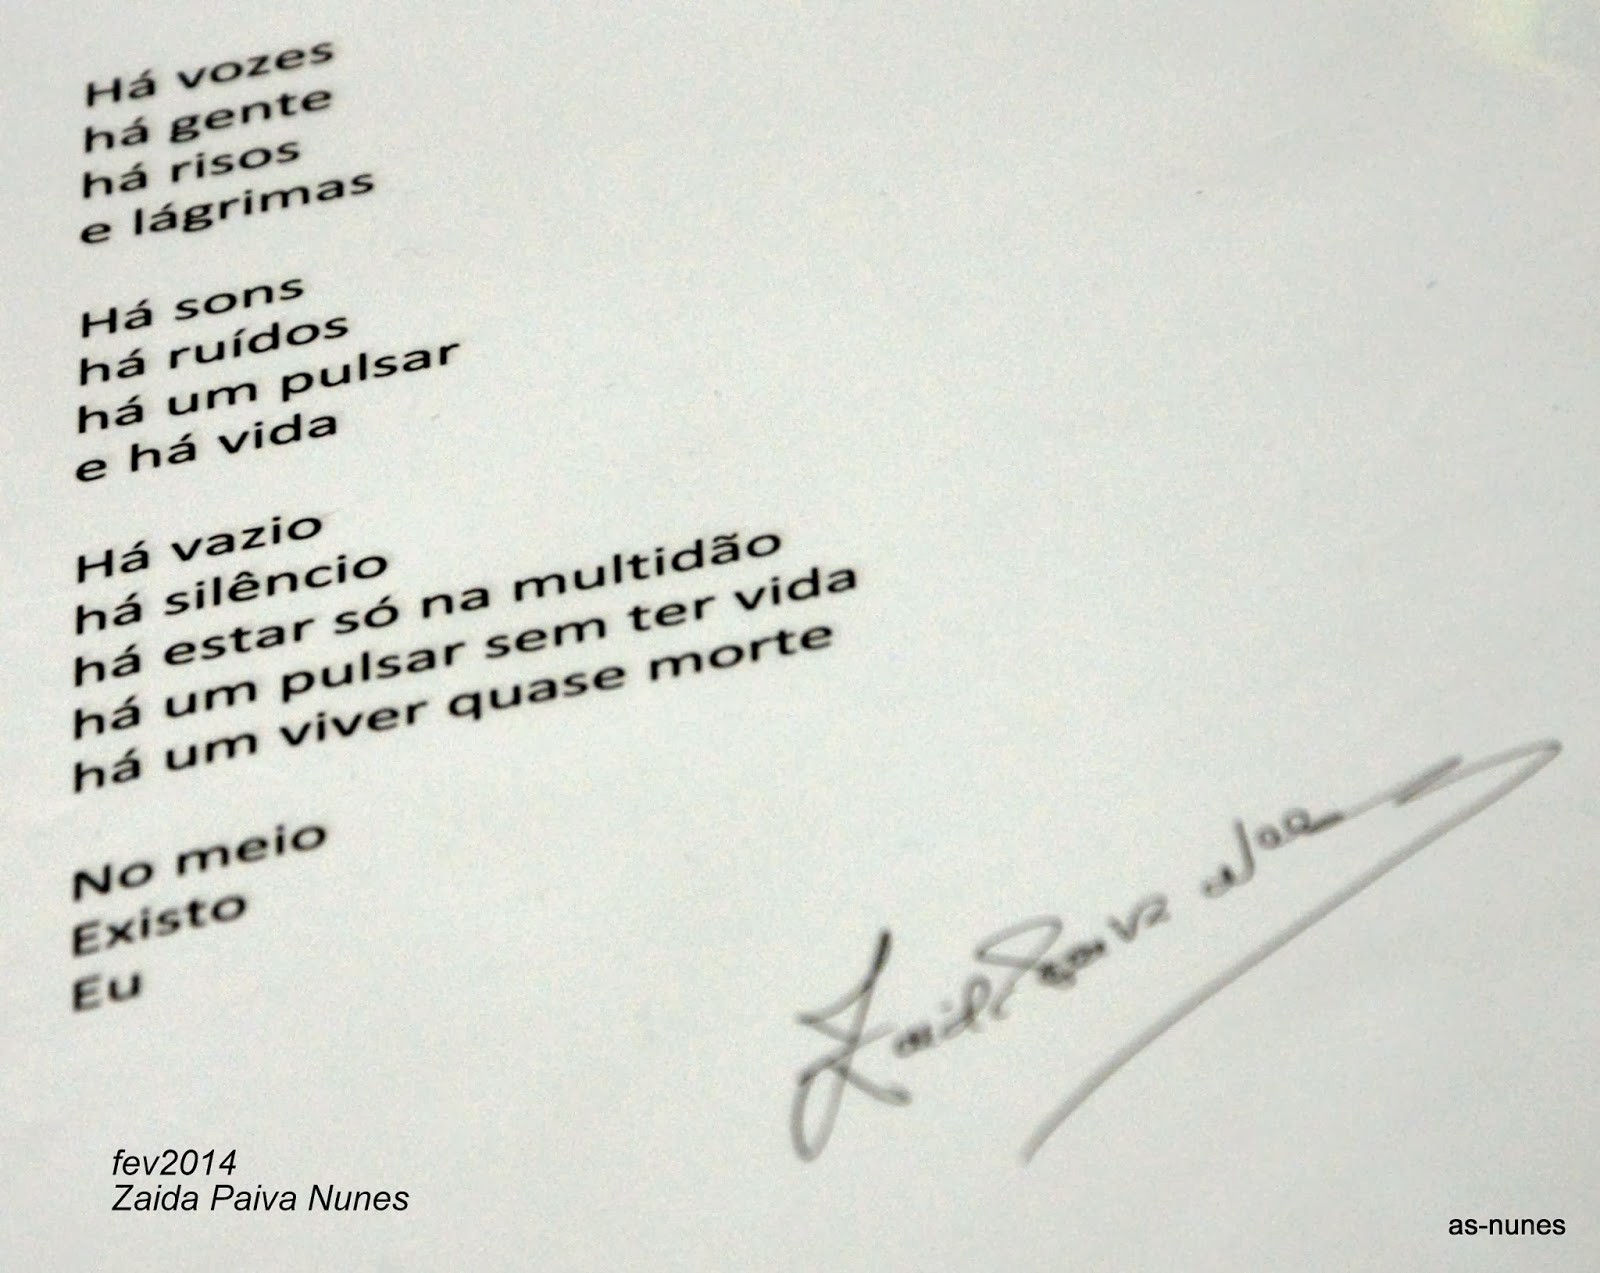 Há vozes
há gente
há risos
e lágrimas
Há sons
há ruídos
há um pulsar
e há vida
Há vazio
há silêncio
há estar só na multidão
há um pulsar sem ter vida
há um viver quase morte
No meio
Existo
Eu
Zaida Paiva Nunes
fev2014
Zaida Paiva Nunes
as-nunes